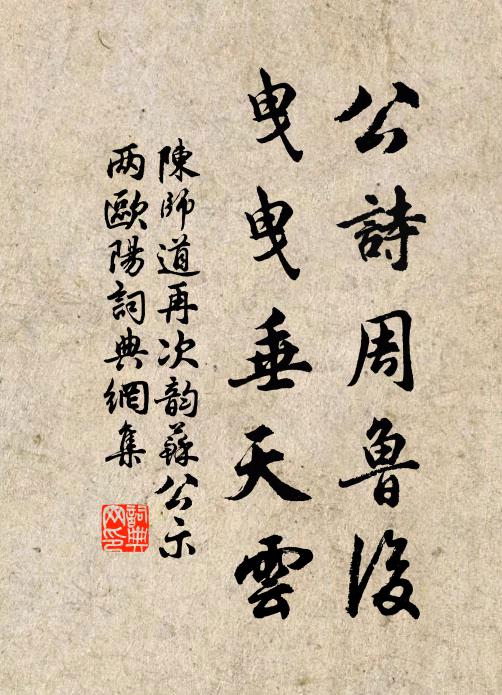 公詩周魯後
曳曳垂天雲
陳師道再次韵蘇公示
两歐陽詞典網集
詞典网印